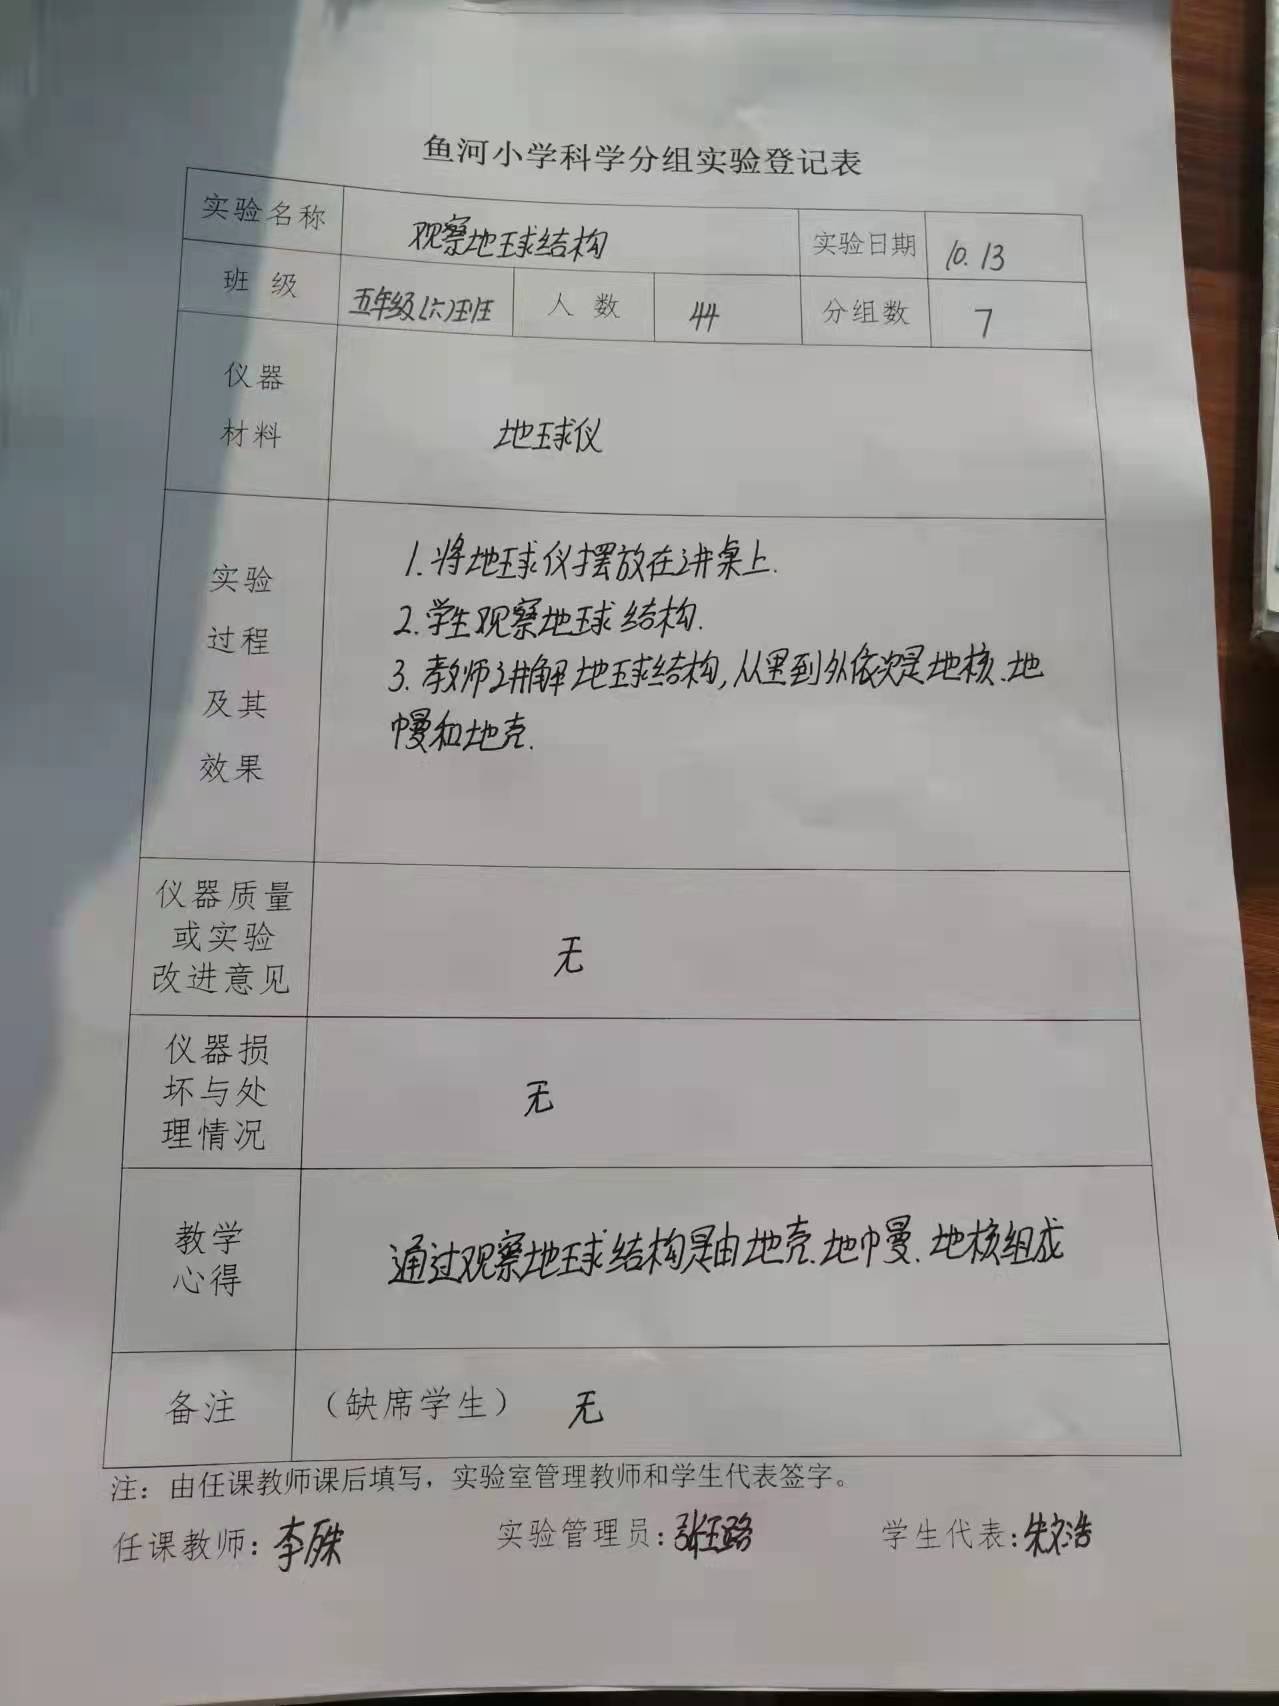 鱼河小学科学分组实验登记表
实验名称 观察地球结构 实验日期 10.13
班级 五年级(六)班 人数 44 分组数 7
仪器
材料
地球仪
实验
过程
及其
效果
1.将地球仪摆放在讲桌上.
2.学生观察地球结构.
3.教师讲解地球结构,从里到外依次是地核、地
幔和地壳.
仪器质量
或实验
改进意见
无
仪器损
坏与处
理情况
无
教学
心得
通过观察地球结构是由地壳.地幔.地核组成
备注 (缺席学生) 无
注：由任课教师课后填写，实验室管理教师和学生代表签字。
任课教师: 李 实验管理员: 张玉路 学生代表: 朱文浩